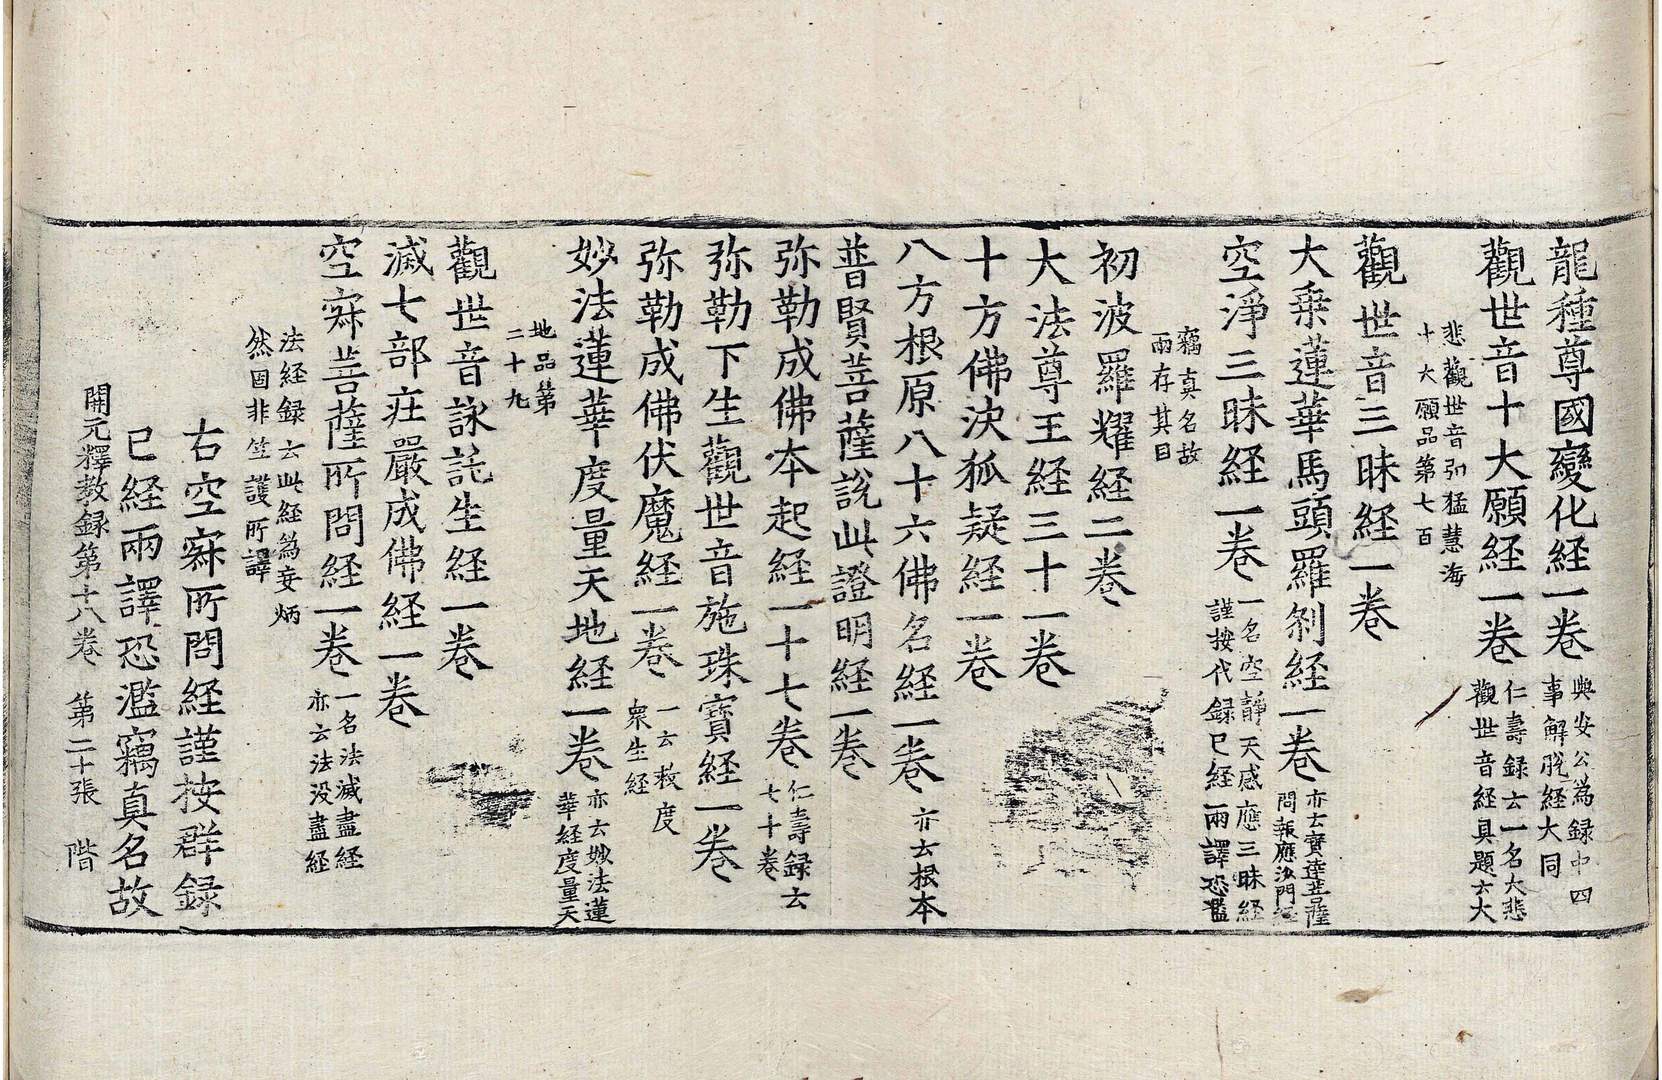 龍種尊國變化経一卷 與安公為録中四事解脱経大同
觀世音十大願経一卷 仁壽録云一名大悲觀世音経具題云大
悲觀世音弘猛慧海十大願品第七百
觀世音三昧経一卷
大乗蓮華馬頭羅刹経一卷 亦云寳達菩薩問報應沙門経
空淨三昧経一卷 一名空靜天感應三昧経謹按代録已経兩譯恐濫
竊真名故兩存其目
初波羅耀経二卷
大法尊王経三十一卷
十方佛決狐疑経一卷
八方根原八十六佛名経一卷 亦云根本
普賢菩薩說此證明経一卷
弥勒成佛本起経一十七卷 仁壽録云七十卷
弥勒下生觀世音施珠寶経一卷
弥勒成佛伏魔経一卷 一云救度衆生経
妙法蓮華度量天地経一卷 亦云妙法蓮華経度量天
地品第二十九
觀世音詠託生経一卷
滅七部莊嚴成佛経一卷
空寂菩薩所問経一卷 一名法滅盡経亦云法没盡経
法経録云此経為妄炳然固非竺護所譯
右空寂所問経謹按群録
已経兩譯恐濫竊真名故
開元釋教録第十八卷 第二十張 階